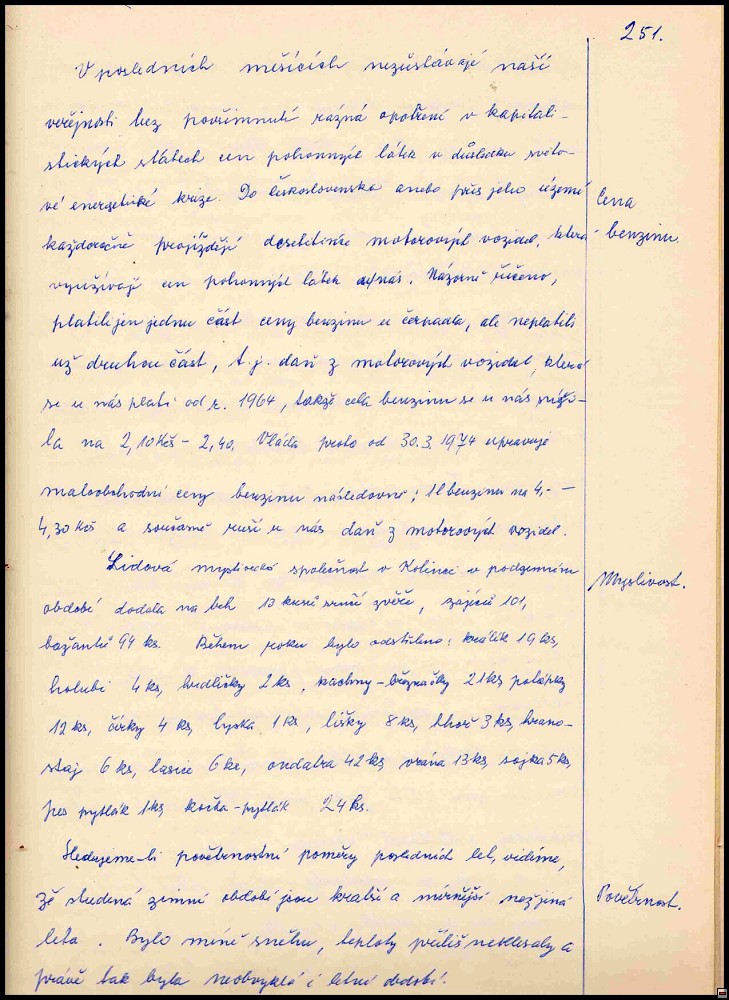 251.
V posledních měsících nezůstávají naší
veřejnosti bez povšimnutí různá opatření v kapitali-
stických státech cen pohonných látek v důsledku světo-
vé energetické krize. Do Československa anebo přes jeho území
každoročně projíždějí desetitisíce motorových vozidel, která
využívají cen pohonných látek u nás. Názorně řečeno,
platili jen jednu část ceny benzinu u čerpadla, ale neplatili
už druhou část, t.j. daň z motorových vozidel, která
se u nás platí od r. 1964, takže cela benzinu se u nás sníži-
la na 2,10 Kčs - 2,40. Vláda proto od 30.3.1974 upravuje
maloobchodní ceny benzinu následovně; 1l benzinu na 4,- —
4,30 Kčs a současně ruší u nás daň z motorových vozidel.
Cena
benzinu.
Lidová myslivecká společnost v Kolinci v podzemním
období dodala na trh 13 kusů srnčí zvěře, zajíců 101,
bažantů 94 ks. Během roku bylo odstřeleno: králík 19 ks,
holubi 4 ks, hrdličky 2 ks, kachny-březňačky 21 ks, polápky
12 ks, čírky 4 ks, lyska 1 ks, lišky 8 ks, tchoř 3 ks, hrano-
staj 6 ks, lasice 6 ks, ondatra 42 ks, vrána 13 ks, sojka 5 ks,
pes pytlák 1 ks, kočka-pytlák 24 ks.
Myslivost.
Sledujeme-li povětrnostní poměry posledních let, vidíme,
že studená zimní období jsou kratší a mírnější než jiná
leta. Bylo méně sněhu, teploty příliš neklesaly a
právě tak byla neobvyklá i letní období.
Povětrnost.